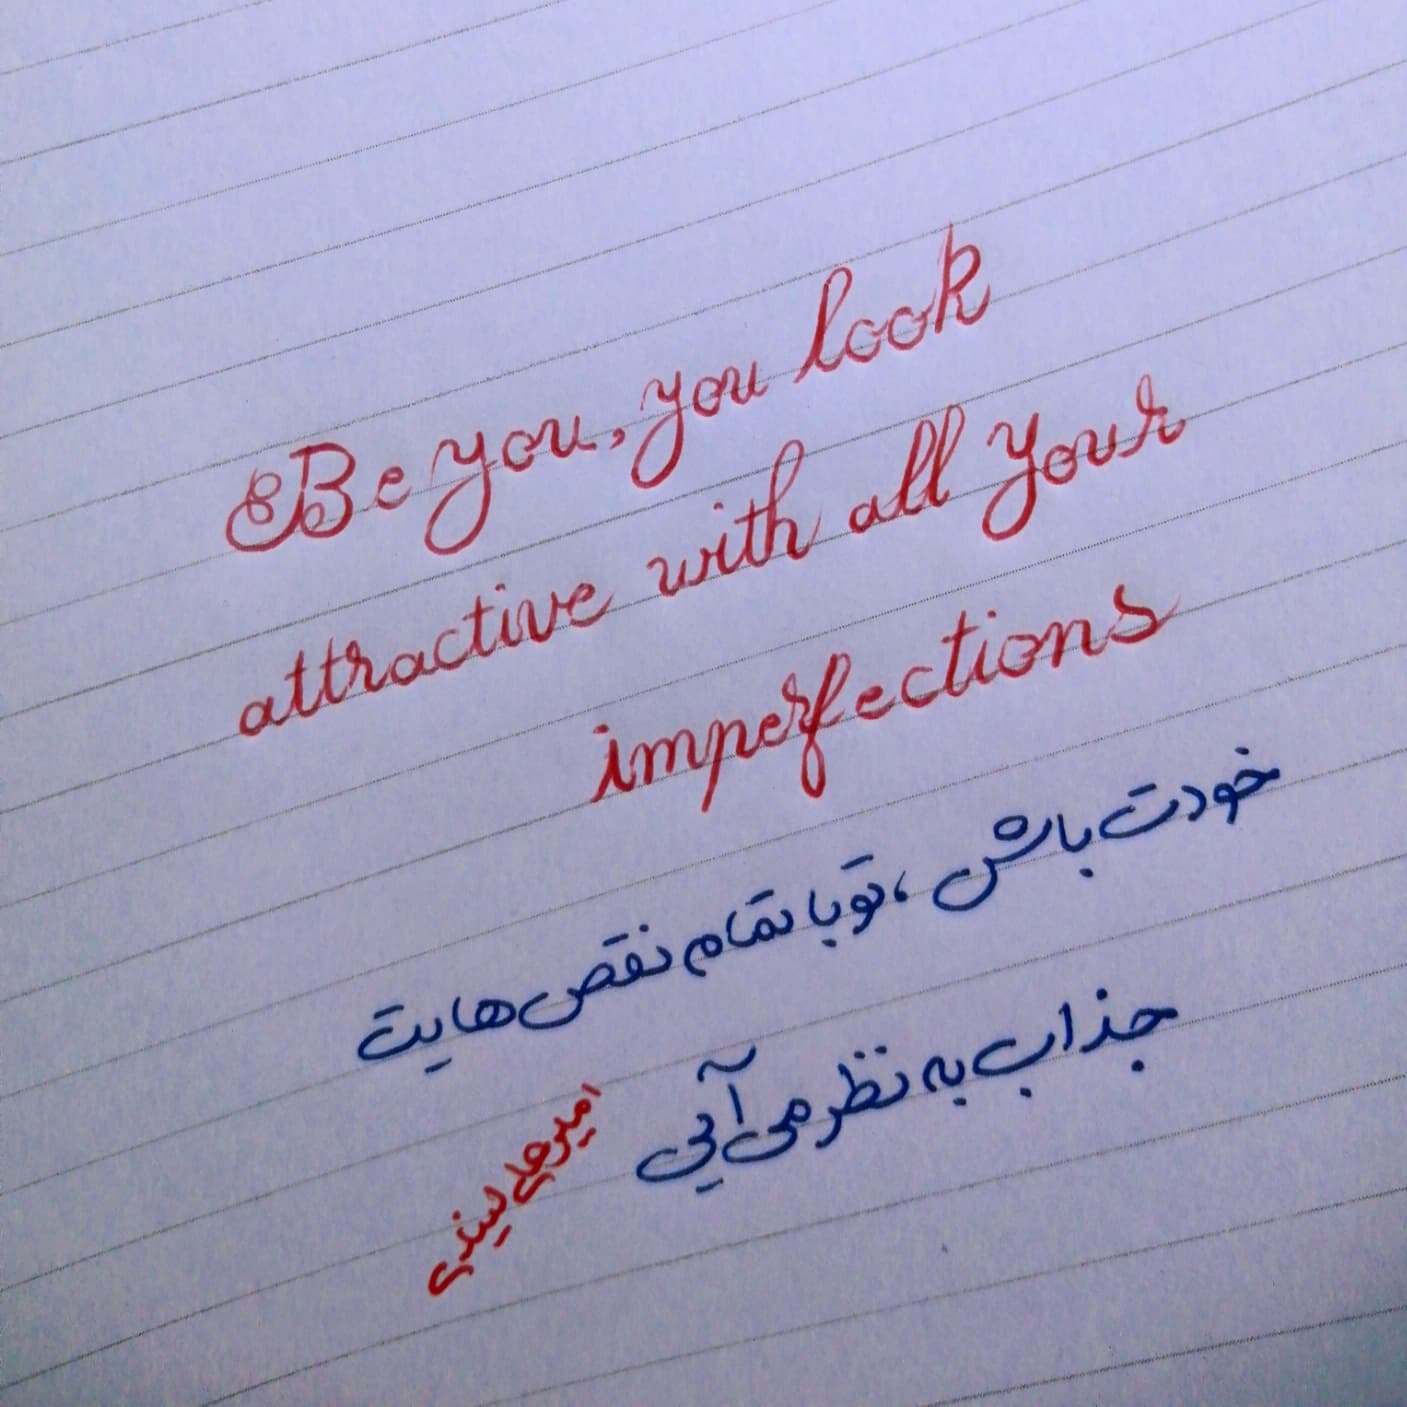 Be you, you look
attractive with all your
imperfections
خودت باش، تو با تمام نقص هایت
جذاب به نظر می آیی